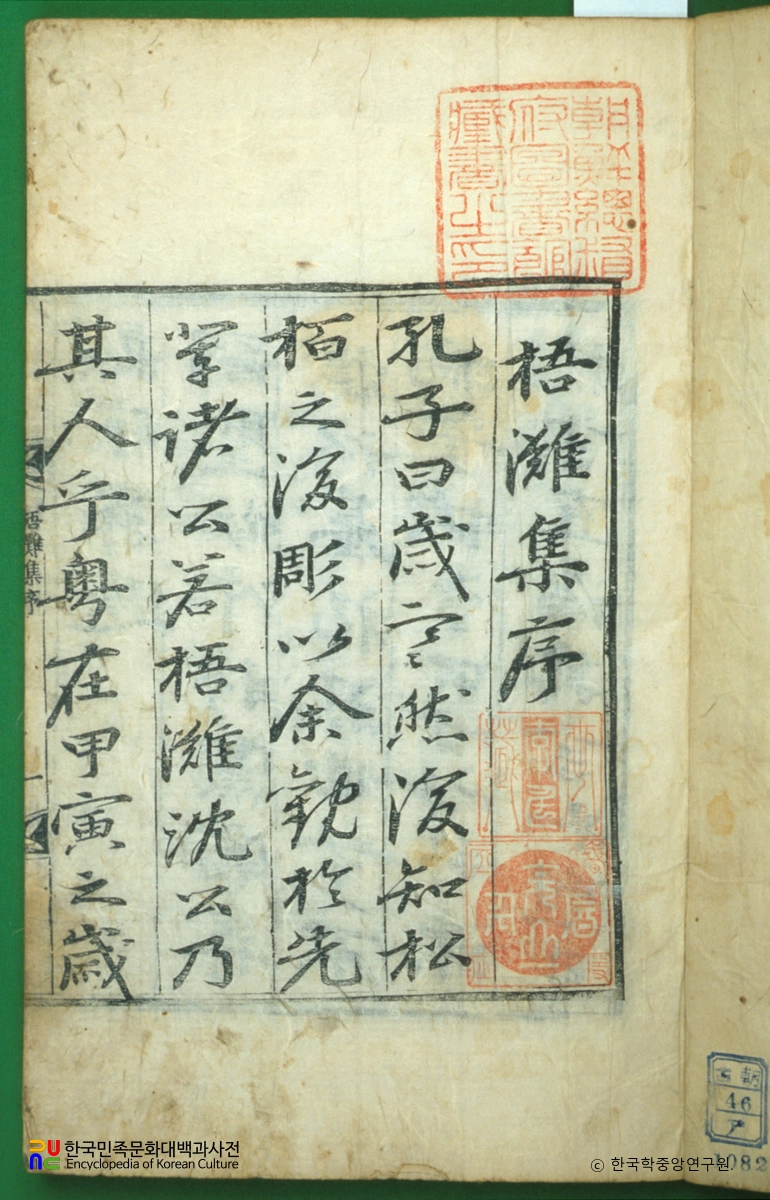 朝鮮總督
府圖書館
藏書之印
梧灘集序
孔子曰歲寒然後知松
栢之後彫以余觀於先
輩諸公若梧灘沈公乃
其人乎粤在甲寅之歲
梧灘集序
古朝
46
1082
한국민족문화대백과사전
Encyclopedia of Korean Culture
© 한국학중앙연구원